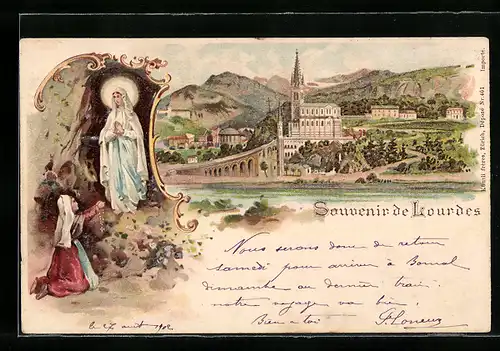 Künzli frères, Zürich, Déposé Nr. 461 Importé.
Souvenir de Lourdes
Nous serons donc de retour
samedi pour arriver à
dimanche au dernier train.
notre voyage va bien.
Bien à toi
le 27 août 1902